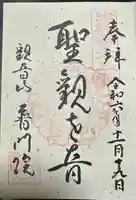 奉拝
令和六年十一月十九日
聖観世音
観音山
普門院